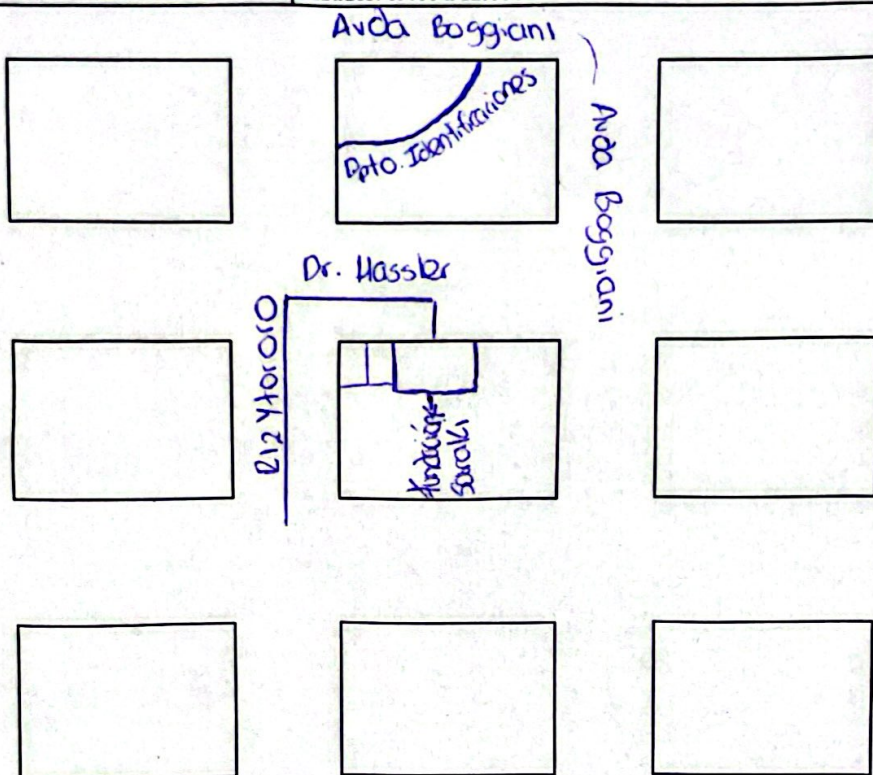 Avda Boggiani
Dpto. Identificaciones
Avda Boggiani
Dr. Hassler
R12 Ytororo
Fundación
Saraki